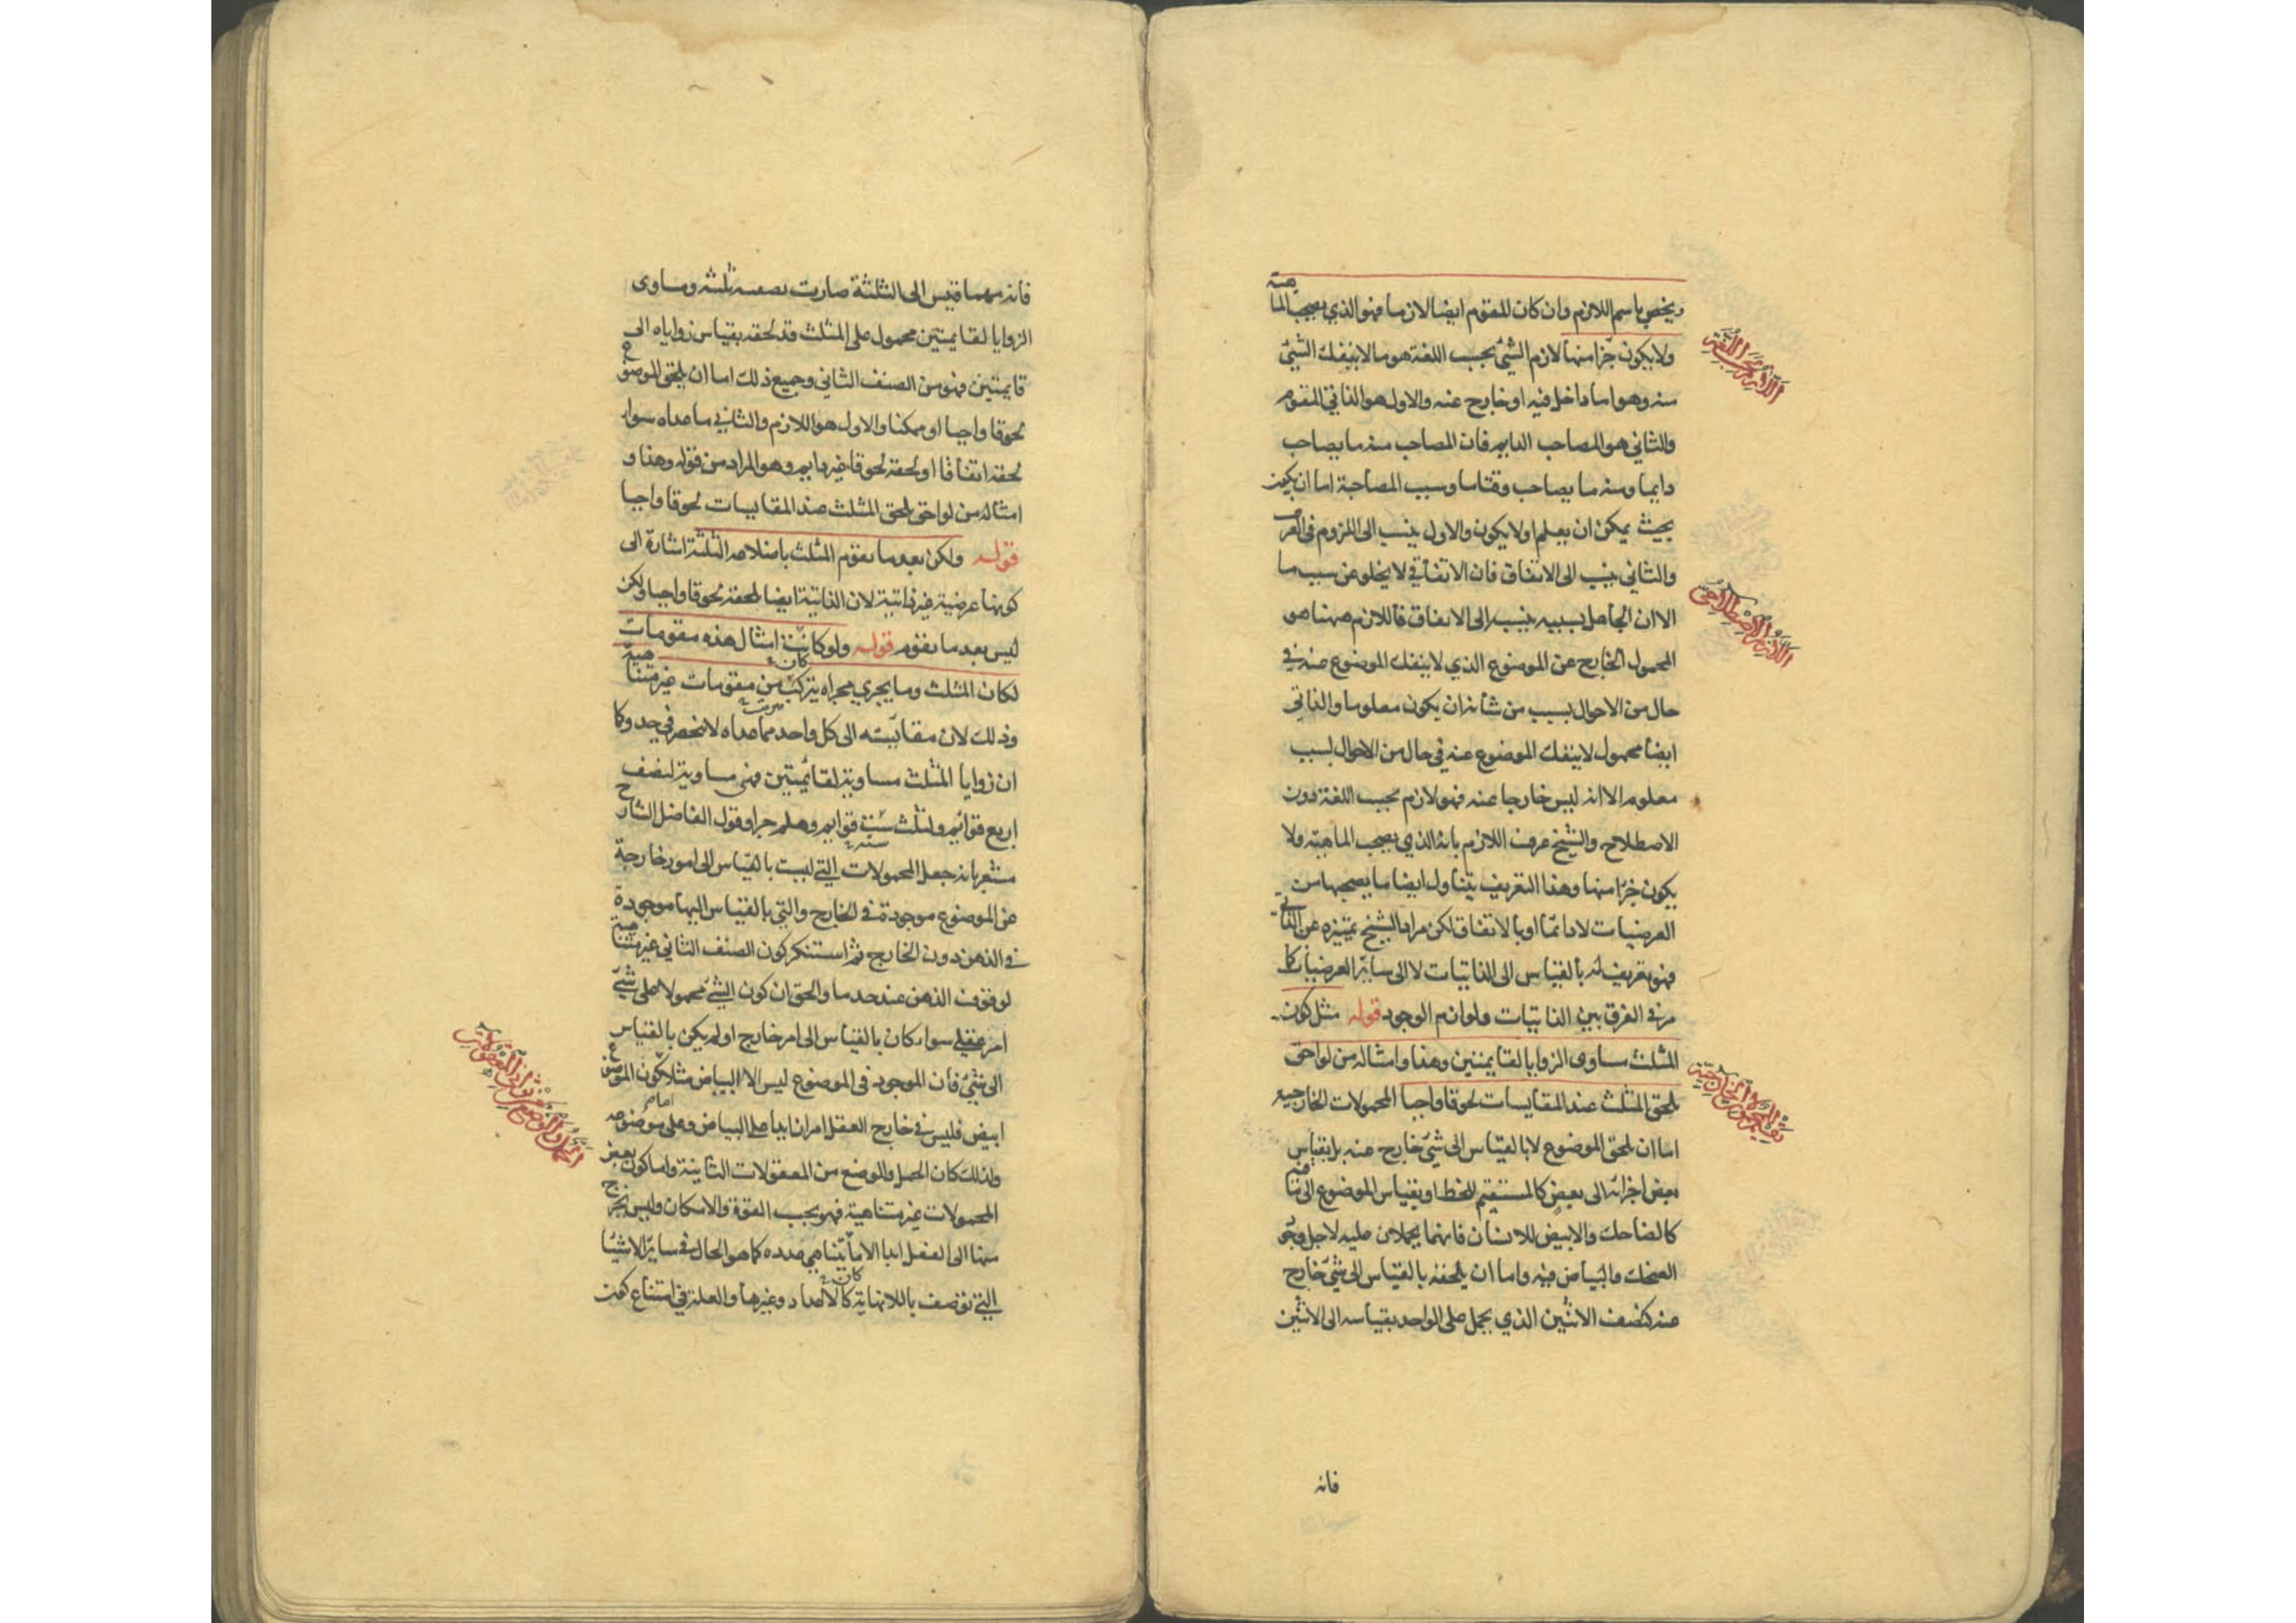 ويخص باسم اللازم وان كان المقوم ايضا لازما فهو الذي يصحب الماهية
ولا يكون جزا منها لازم الشئ بحسب اللغة هو ما لا ينفك الشئ
منه وهو اما داخل فيه او خارج عنه والاول هو الذاتي المقوم
والثاني هو المصاحب الدايم فان المصاحب منه ما يصاحب
دايما ومنه ما يصاحب وقتاما وسبب المصاحبة اما ان يكون
بحيث يمكن ان يعلم او لا يكون والاول ينسب الى اللزوم في العرف
والثاني ينسب الى الاتفاق فان الاتفاقي لا يخلو عن سبب ما
الا ان الجاهل بسببه ينسبه الى الاتفاق فاللازم ههنا هو
المحمول الخارج عن الموضوع الذي لا ينفك الموضوع عنه في
حال من الاحوال بسبب من شانه ان يكون معلوما والذاتي
ايضا محمول لا ينفك الموضوع عنه في حال من الاحوال لسبب
معلوم الا انه ليس خارجا عنه فهو لازم بحسب اللغة دون
الاصطلاح والشيخ عرف اللازم بانه الذي يصحب الماهية ولا
يكون جزا منها وهذا التعريف يتناول ايضا ما يصحبها من
العرضيات لا دائما او بالاتفاق لكن مراد الشيخ تمييزه عن الذاتي
فهو تعريف له بالقياس الى الذاتيات لا الى ساير العرضيات كما
مر في الفرق بين الذاتيات ولوازم الوجود قوله مثل كون
المثلث مساوى الزوايا لقايمتين وهذا وامثاله من لواحق
يلحق المثلث عند المقايسات لحوقا واجبا المحمولات الخارجية
اما ان يلحق الموضوع لا بالقياس الى شئ خارج عنه بل بقياس
بعض اجزائه الى بعض كالمستقيم للخط او بقياس الموضوع الى ما فيه
كالضاحك والابيض للانسان فانهما يحملان عليه لاجل وجود
الضحك والبياض فيه واما ان يلحقه بالقياس الى شئ خارج
عنه كنصف الاثنين الذي يحمل على الواحد بقياسه الى الاثنين
فانه
اللازم بحسب اللغة
اللازم الاصطلاحي
تقسيم المحمولات الخارجية
فانه مهما قيس الى الثلثة صارت نصفه ثلثه ومساوى
الزوايا لقايمتين محمول على المثلث قد لحقه بقياس زواياه الى
قايمتين فهو من الصنف الثاني وجميع ذلك اما ان يلحق الموضوع
لحوقا واجبا او ممكنا والاول هو اللازم والثاني ما عداه سواء
لحقه اتفاقا او لحقه لحوقا غير دايم وهو المراد من قوله وهذا و
امثاله من لواحق يلحق المثلث عند المقايسات لحوقا واجبا
قوله ولكن بعد ما يقوم المثلث باضلاعه الثلثة اشارة الى
كونها عرضية غير ذاتية لان الذاتية ايضا يلحقه لحوقا واجبا ولكن
ليس بعد ما يقوم قوله ولو كانت امثال هذه مقومات
لكان المثلث وما يجري مجراه يتركب من مقومات غير متناهية
وذلك لان مقايسته الى كل واحد مما عداه لا ينحصر في حد وكما
ان زوايا المثلث مساوية لقائمتين فهى مساوية لنصف
اربع قوائم ولثلث ست قوايم وهلم جرا وقول الفاضل الشارح
مشعر بانه جعل المحمولات التي ليست بالقياس الى امور خارجة
عن الموضوع موجودة في الخارج والتي بالقياس اليها موجودة
في الذهن دون الخارج ثم استنكر كون الصنف الثاني غير متناهية
لوقوف الذهن عند حد ما والحق ان كون الشئ محمولا على شئ
امر عقلي سواء كان بالقياس الى امر خارج او لم يكن بالقياس
الى شئ فان الموجود في الموضوع ليس الا البياض مثلا كون الموضوع
ابيض فليس في خارج العقل امر زايد على البياض وعلى موضوعه
ولذلك كان الحمل والوضع من المعقولات الثانية واما كون بعض
المحمولات غير متناهية فهو بحسب القوة والامكان وليس يخرج
منها الى الفعل ابدا الا ما يتناهى عدده كما هو الحال في ساير الاشيا
التي توصف باللانهاية كالاعداد وغيرها والعلة في امتناع كون
الحمل والوضع من ثواني المعقولات